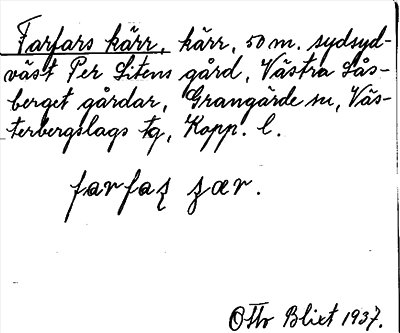 Farfars kärr, kärr, 50 m. sydsyd-
väst Per Litens gård, Västra Lås-
berget gårdar, Grangärde sn, Väs-
terbergslags tg, Kopp. l.
farfaʂ ʂær.
Otto Blixt 1937.